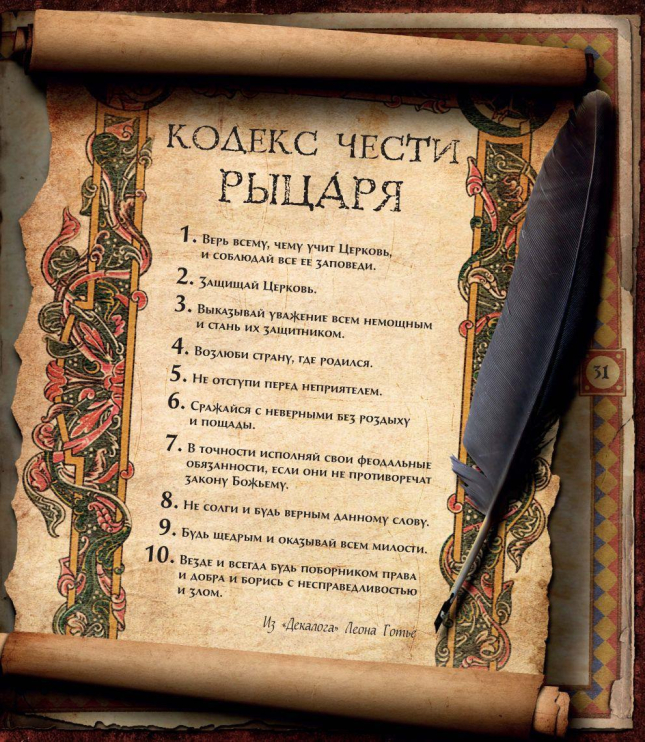 КОДЕКС ЧЕСТИ
РЫЦАРЯ
1. Верь всему, чему учит Церковь,
и соблюдай все ее заповеди.
2. Защищай Церковь.
3. Выказывай уважение всем немощным
и стань их защитником.
4. Возлюби страну, где родился.
5. Не отступи перед неприятелем.
6. Сражайся с неверными без роздыху
и пощады.
7. В точности исполняй свои феодальные
обязанности, если они не противоречат
закону Божьему.
8. Не солги и будь верным данному слову.
9. Будь щедрым и оказывай всем милости.
10. Везде и всегда будь поборником права
и добра и борись с несправедливостью
и злом.
Из «Декалога» Леона Готье
31